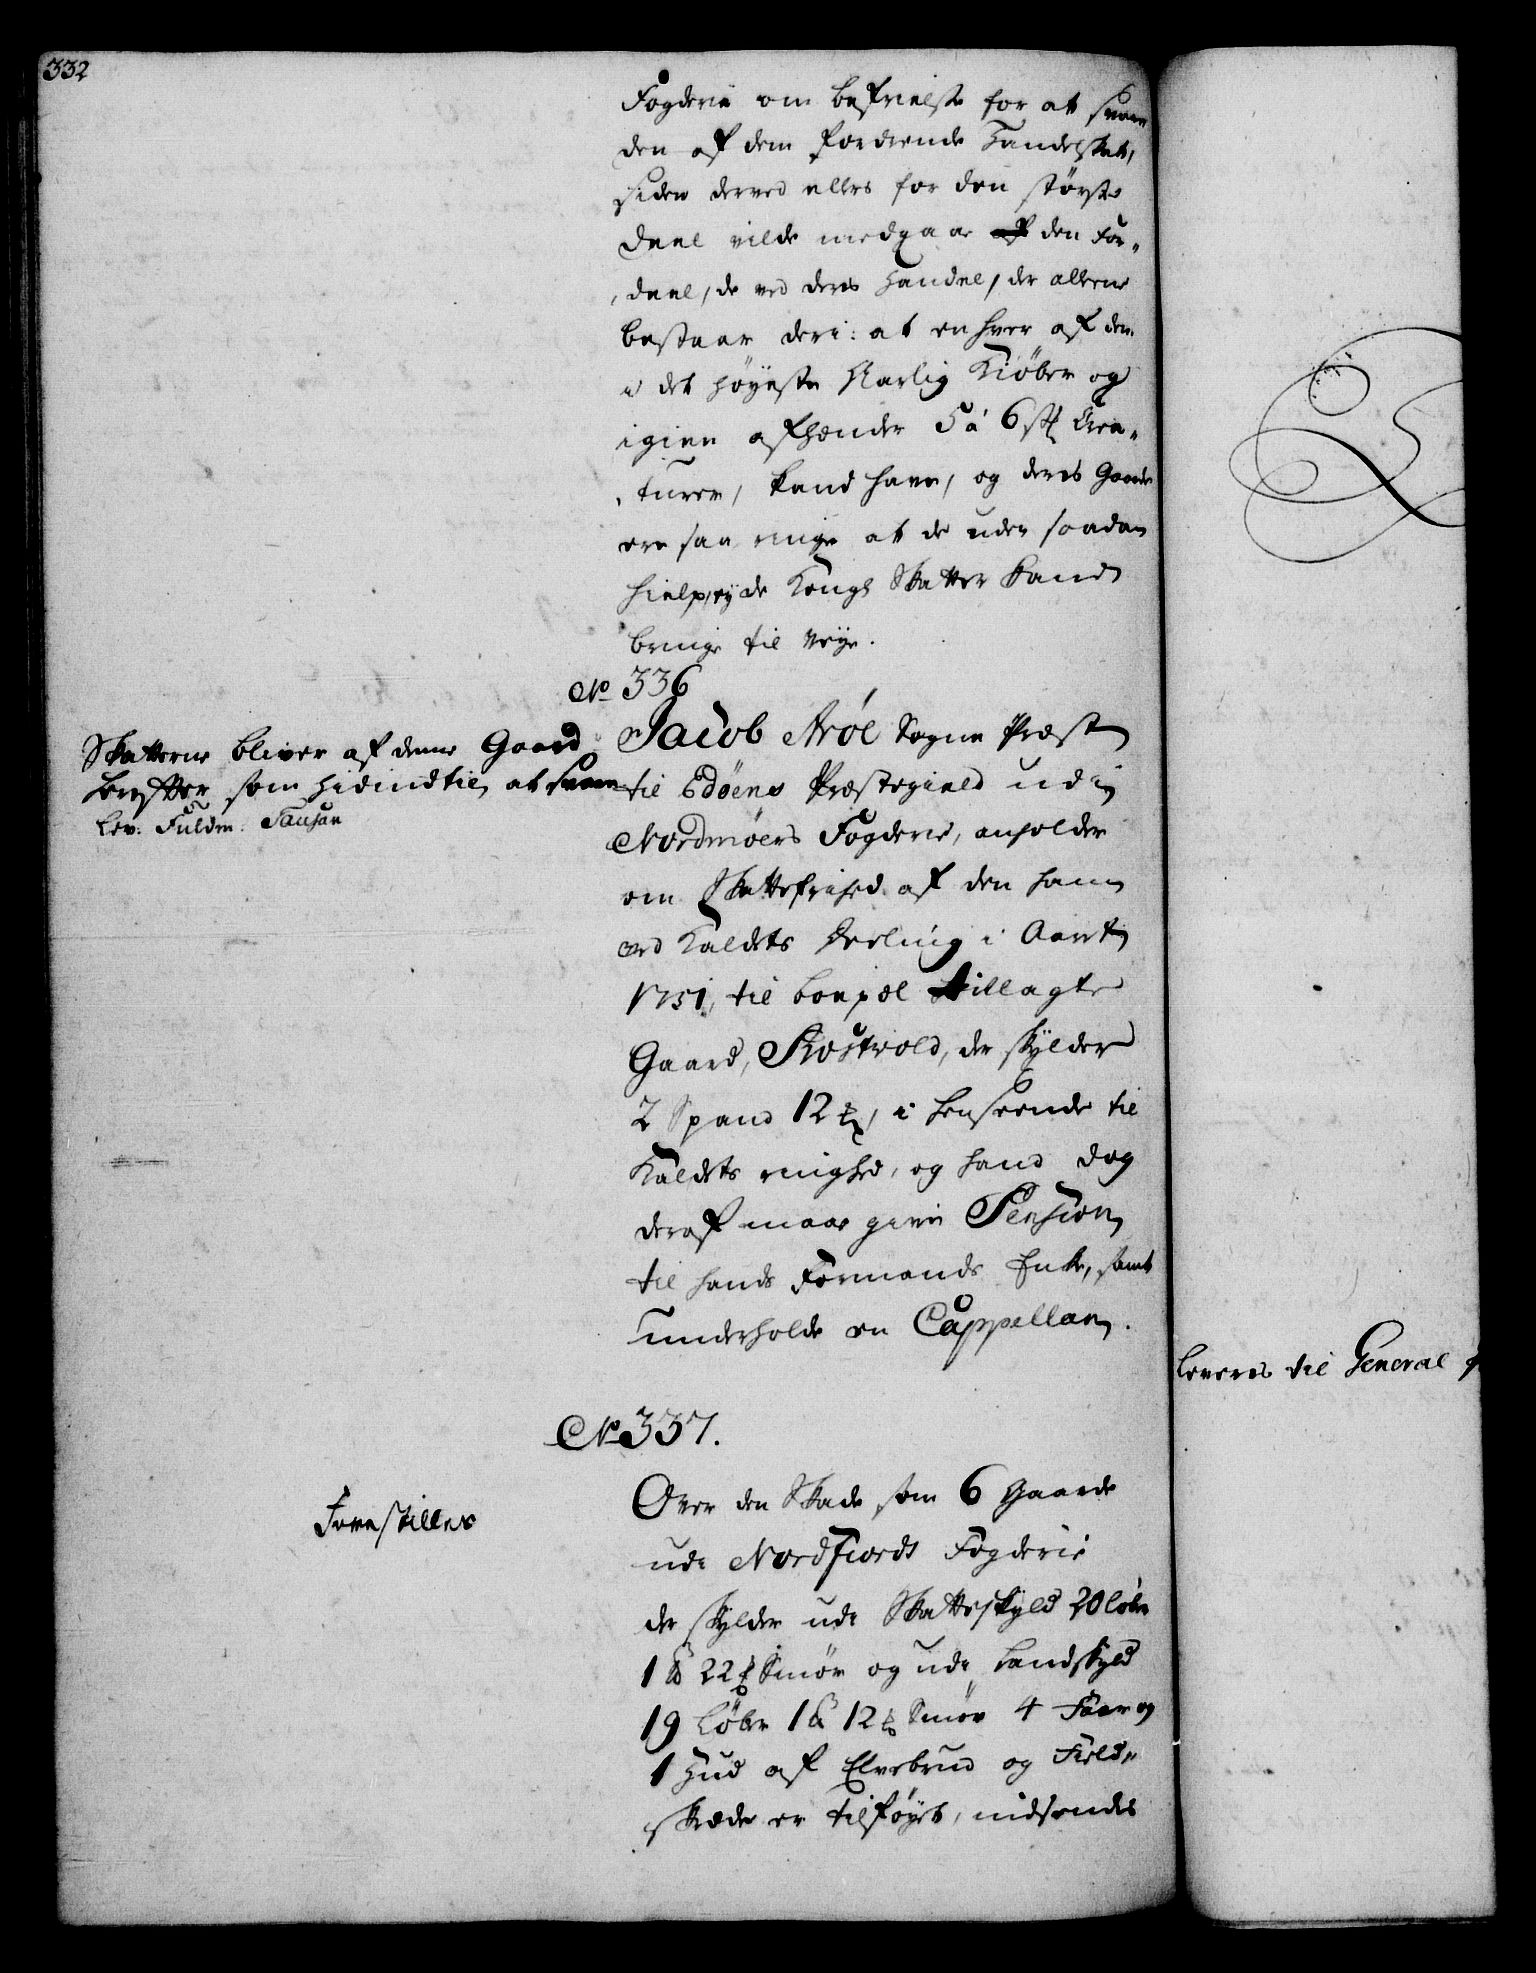 332
Fogderie om befrielse for at svare
den af dem fordrende Handelskat,
siden derved ellers for den største
Deel vilde medgaae af den For-
deel, de ved deres Handel, der alleene
bestaar deri: at enhver af dem
i det høyeste Aarlig Kiøber og
igien afhænder 5 á 6 st. Crea-
turer, kand have, og deres Gaarde
ere saa ringe at de uden saadan
hielp, ey de Kongl. Skatter kand
bringe til Veye.
No 336
Skatterne bliver af denne Gaard
herefter som hidindtil, at svare
Lev: Fuldm: Tausan
Jacob Arøe Sogne Præst
til Edøens Præstegield udi
Nordmøers Fogderie, anholder
om Skattefrihed af den ham
ved Kaldets deeling i Aaret
1751, til boepæl tillagte
Gaard, Rostvold, der skylder
2 Spand 12 , i henseende til
Kaldets ringhed, og hand dog
deraf maae give Pension
til hands Formands Enke, samt
underholde en Cappellan.
No 337.
Forestilles
Over den Skade som 6 Gaarde
udi Nordfiords Fogderie
der skylder udi Skatteskyld 20 løber
1 22 Smør og udi Landskyld
19 Løber 1 12 Smør 4 Faar og
1 Hud af Elvebrud og Field-
skrede er tilføyet, indsendes
Leveres til General